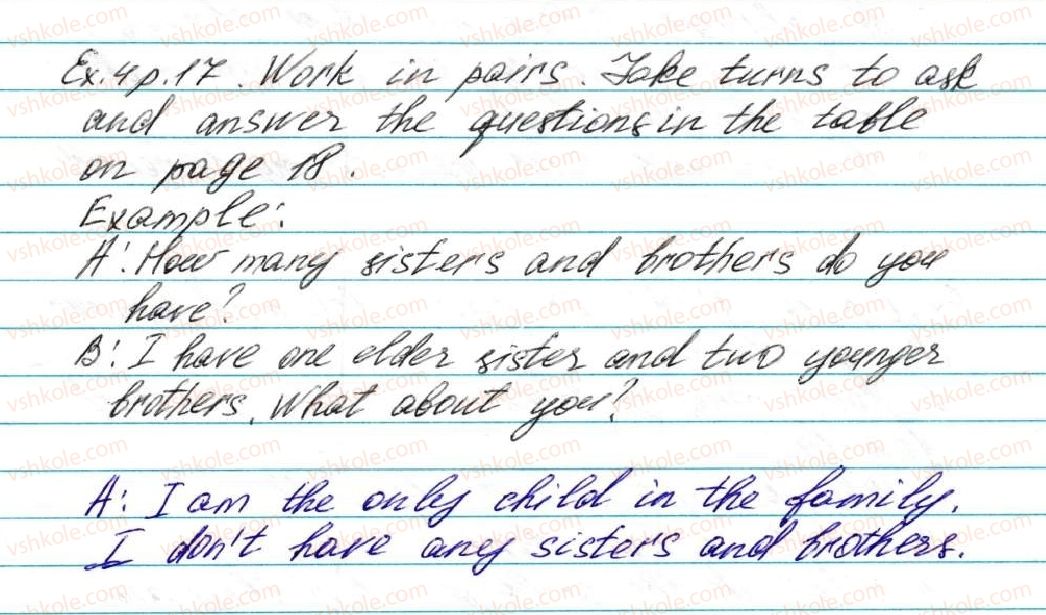 Ex. 4 p. 17. Work in pairs. Take turns to ask
and answer the questions in the table
on page 18.
Example:
A: How many sisters and brothers do you
have?
B: I have one elder sister and two younger
brothers. What about you?
A: I am the only child in the family.
I don't have any sisters and brothers.
vshkole.com